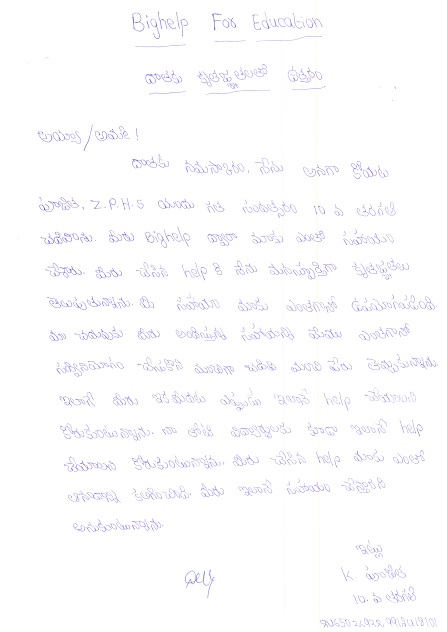 Bighelp For Education
దాతకు కృతజ్ఞతలతో పత్రం
అయ్యా/అమ్మా!
దాతకు నమస్కారం, నేను అనగా
Z.P.H.S యందు గత సంవత్సరం 10 వ తరగతి
చదివినాను. మీరు Bighelp ద్వారా మాకు ఎంతో సహాయం
చేశారు. మీరు చేసిన help కి నేను మనస్పూర్తిగా కృతజ్ఞతలు
తెలుపుతున్నాను. మీ సహాయం మాకు ఎంతగానో ఉపయోగపడింది.
మా చదువుకు మీరు అందిస్తున్న సహాయాన్ని మేము ఎంతగానో
సద్వినియోగం చేసుకొని మంచిగా చదివి మంచి పేరు తెచ్చుకున్నాను
ఇలానే మీరు ఇక ముందు ఇలానే help చేయాలని
కోరుకుంటున్నాను. నా తోటి విద్యార్థులకు కూడా ఇలానే help
చేయాలని కోరుకుంటున్నాను. మీరు చేసిన help మాకు ఎంతో
ఆనందాన్ని కలిగించింది. మీరు ఇలానే సహాయం చేస్తారని
అనుకుంటున్నాను.
ఇట్లు
K.
10. వ తరగతి